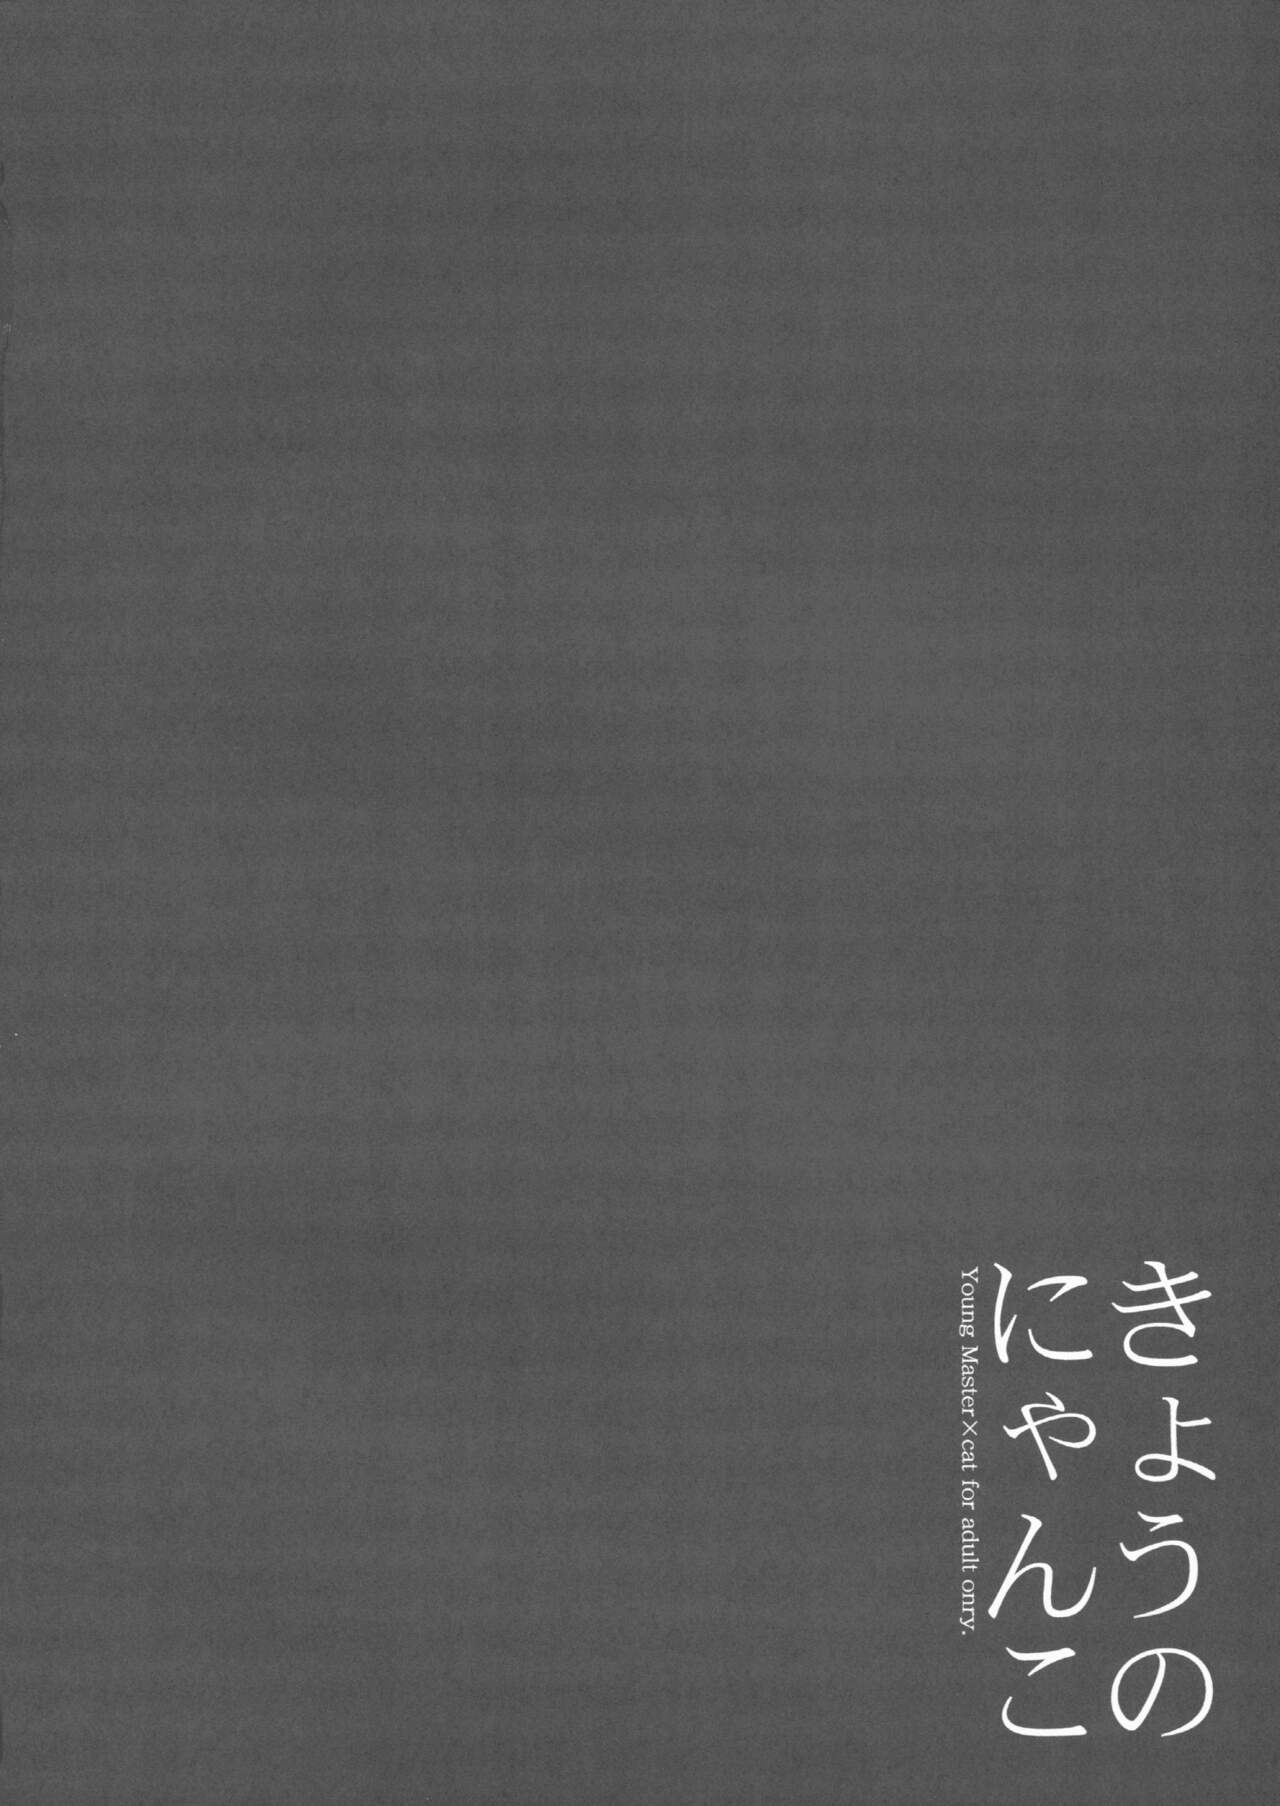 きょうの
にゃんこ
Young Master×cat for adult onry.